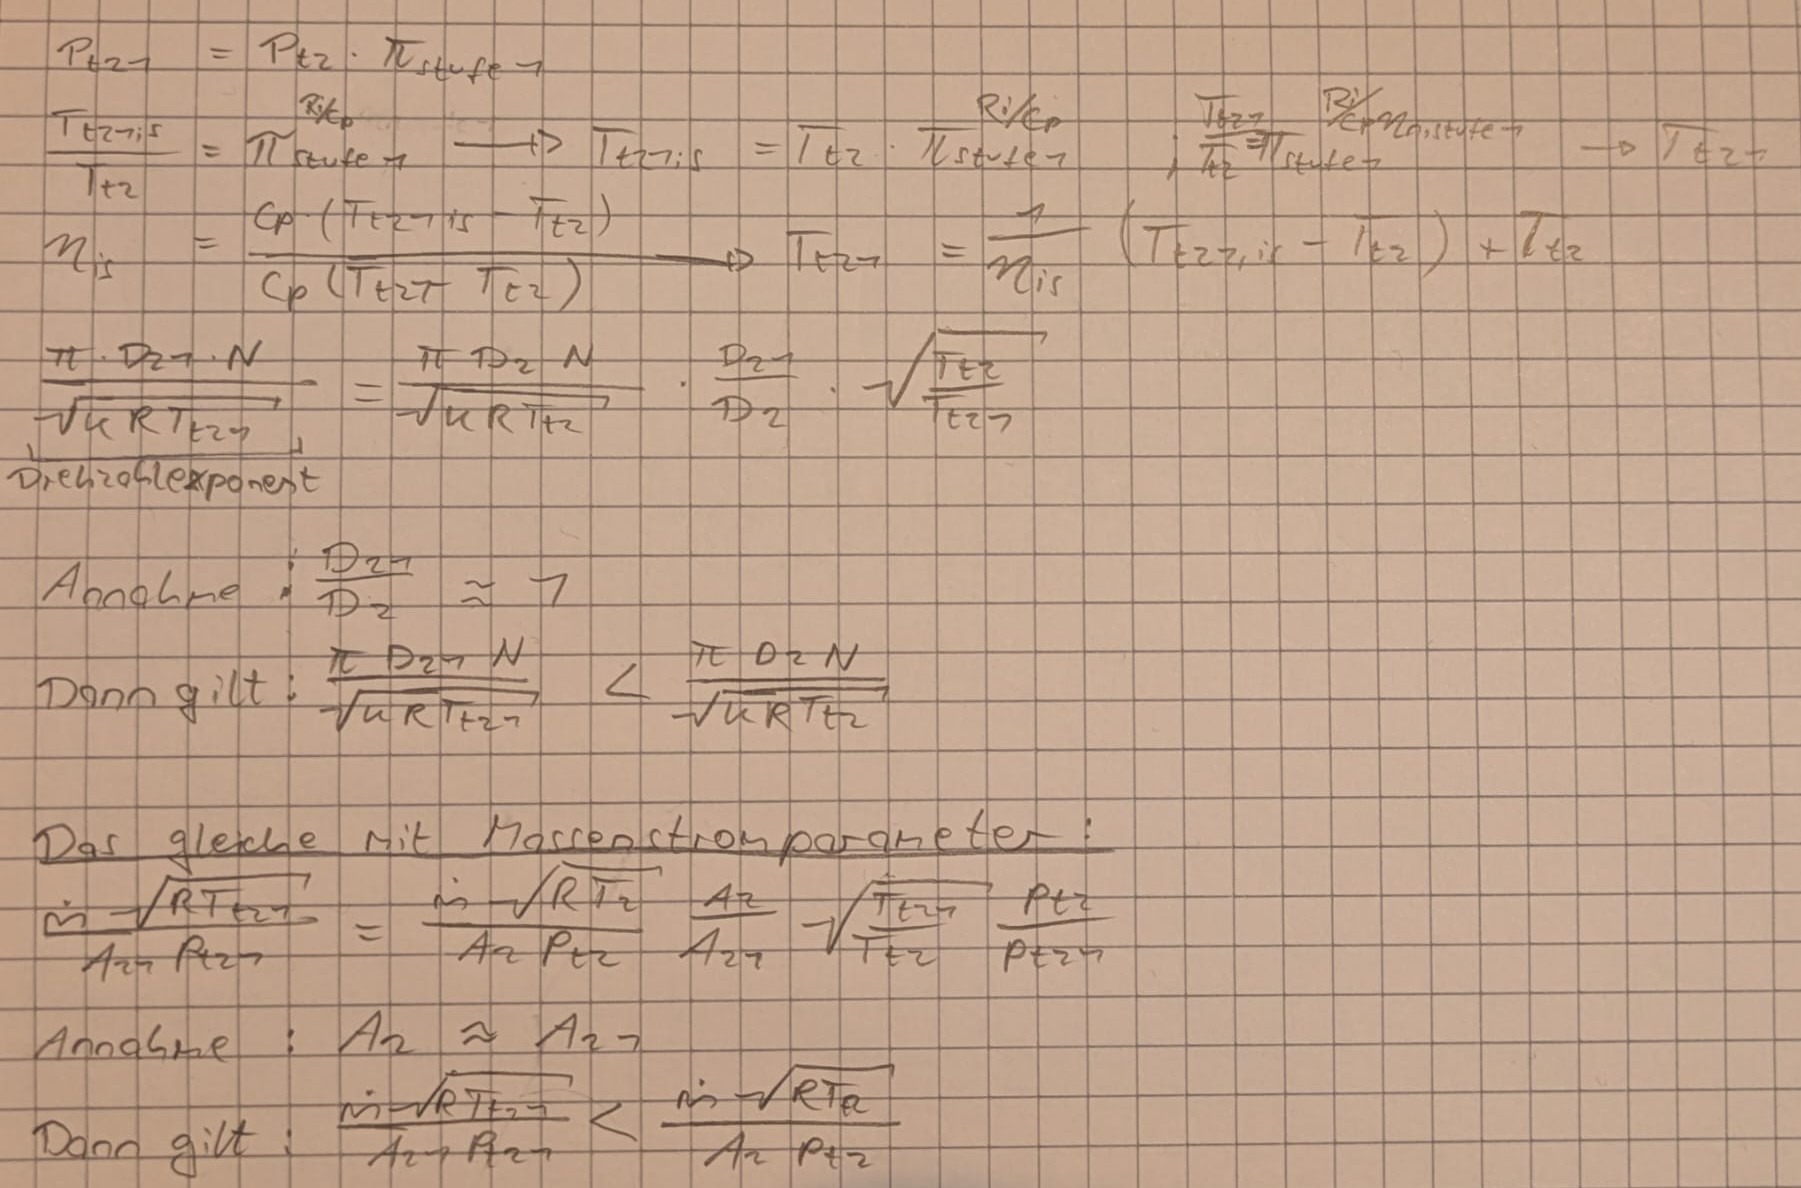 Pt21 = Pt2 · π Stufe 1
Tt21is / Tt2 = π Stufe 1 ^ Ri/cp → Tt21is = Tt2 · π Stufe 1 ^ Ri/cp ; Tt21 / Tt2 = π Stufe 1 ^ Ri/cp → Tt21
ηis = cp · (Tt21is − Tt2) / cp (Tt21 − Tt2) → Tt21 = 1 / ηis (Tt21,is − Tt2) + Tt2
π · D21 · N / √(κ R Tt21) = π D2 N / √(κ R Tt2) · D21 / D2 · √(Tt2 / Tt21)
Drehzahlexponent
Annahme : D21 / D2 ≈ 1
Dann gilt : π D21 N / √(κ R Tt21) < π D2 N / √(κ R Tt2)
Das gleiche mit Massenstromparameter :
ṁ √(R Tt21) / A21 Pt21 = ṁ √(R T2) / A2 Pt2 A2 / A21 √(Tt21 / Tt2) Pt2 / Pt21
Annahme : A2 ≈ A21
Dann gilt : ṁ √(R Tt21) / A21 Pt21 < ṁ √(R T2) / A2 Pt2